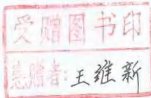 受赠图书印
惠赠者:王维新